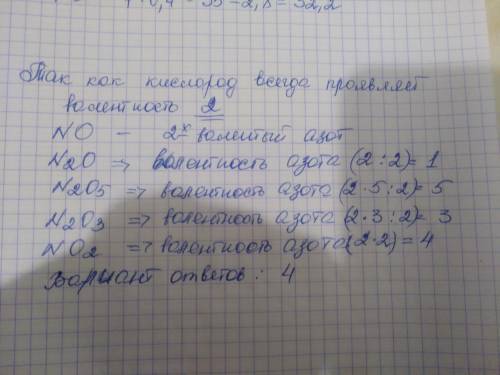 · 0,4 = 35 - 2,8 = 32,2
Так как кислород всегда проявляет
валентность 2
NO — 2х валентый азот
N2O => валентность азота (2:2)= 1
N2O5 => валентность азота (2·5:2)= 5
N2O3 => валентность азота (2·3:2)= 3
NO2 => валентность азота (2·2) = 4
Вариант ответов: 4